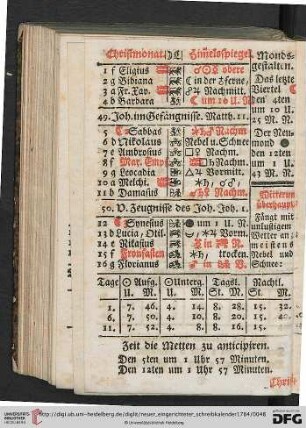 Christmonat Himelsspiegel
1 f Eligius ☌☉☿ obere
2 g Bibiana ☾ in der Ferne,
3 a Fr. Xav. Nachmitt.
4 b Barbara ☾ um 10 U. N
49. Joh. im Gefängnisse. Matth. 11.
5 C Sabbas Nachm
6 d Nikolaus Nebel u. Schnee
7 e Ambrosius Nachm.
8 f Mar. Emp. Nachm.
9 g Leocadia Vormitt.
10 a Melch.
11 b Damasus Nachm.
50. V. Zeugnisse des Joh. Joh. 1.
12 C Synesius um 1 U. N
13 d Lucia, Otil. Vorm.
14 e Nikasius in N.
15 f Fronfasten trocken.
16 g Florianus
Monds-
gestalten.
Das letzte
Viertel
den 4ten
um 10
U. 25
M. N.
Der Neu-
mond
den 12ten
um 1 U.
43 M. N.
Witterun
überhaupt
Fängt mit
unlustigem
Wetter an
meistens
Nebel und
Schnee:
Tage ☉ Aufg. ☉ Unterg. Tagsl. Nachtl.
U. M. U. M. U. M. U. M.
1. 7. 46. 4. 14. 8. 28. 15. 32.
6. 7. 50. 4. 10. 8. 20. 15.
11. 7. 52. 4. 8. 8. 16. 15.
Zeit die Metten zu anticipiren.
Den 5ten um 1 Uhr 57 Minuten.
Den 12ten um 1 Uhr 57 Minuten.
Christ
UNIVERSITÄTS-
BIBLIOTHEK
HEIDELBERG
http://digi.ub.uni-heidelberg.de/diglit/neuer_eingerichteter_schreibkalender1784/0048
© Universitätsbibliothek Heidelberg